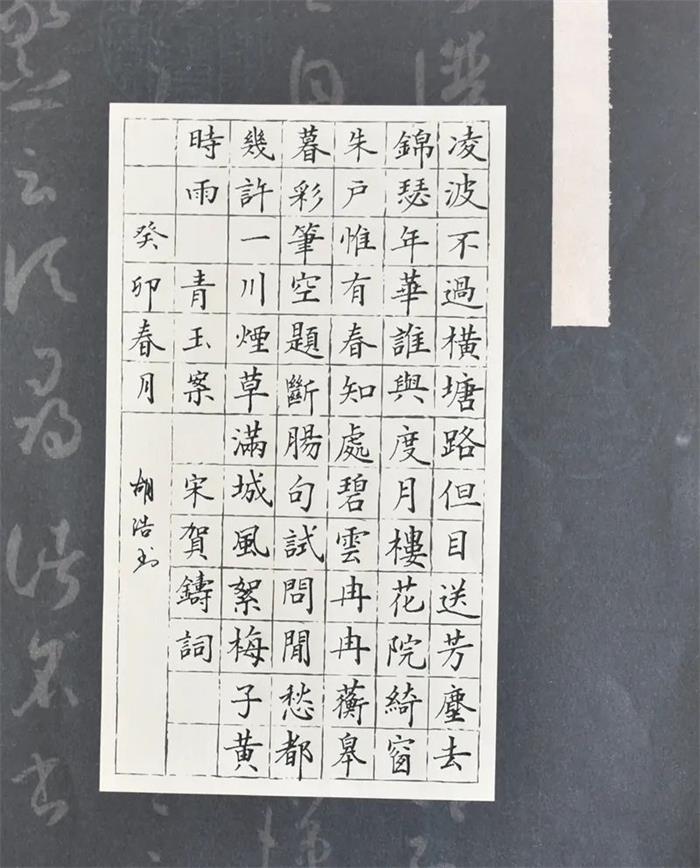 凌波不過橫塘路但目送芳塵去
錦瑟年華誰與度月樓花院綺窗
朱戶惟有春知處碧雲冉冉蘅皋
暮彩筆空題斷腸句試問聞愁都
幾許一川煙草滿城風絮梅子黃
時雨 青玉案 宋賀鑄詞
癸卯春月 胡浩书